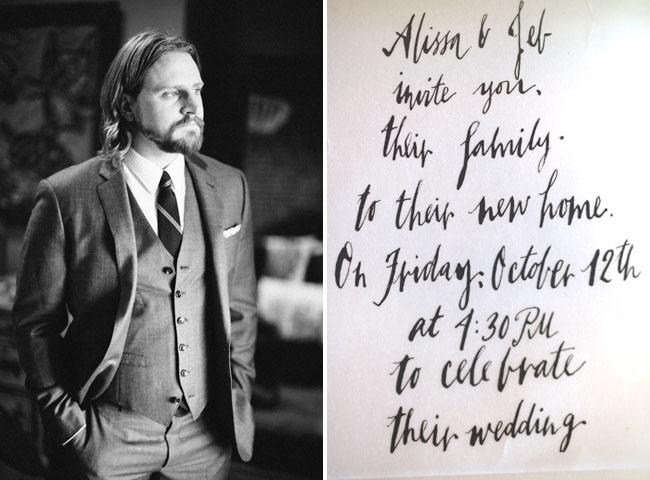 Alissa & Jeb
invite you,
their family.
to their new home.
On Friday, October 12th
at 4:30 PM
to celebrate
their wedding